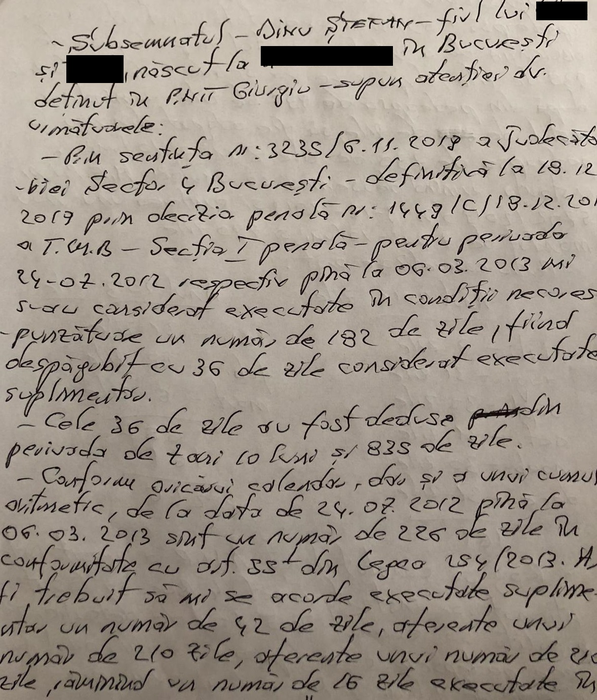 - Subsemnatul - Dinu ȘTEFAN - fiul lui
și , născut la în București
deținut în P.N.T Giurgiu - supun atenției dv.
următoarele:
- Prin sentința nr: 3235/6.11.2019 a Judecăto
-riei Sector 4 București - definitivă la 18.12
2019 prin decizia penală nr: 1449/C/18.12.201
a T.M.B - Secția I penală - pentru perioada
24-07.2012 respectiv pînă la 06.03.2013 mi
s-au considerat executate în condiții necores
-punzătoare un număr de 182 de zile, fiind
despăgubit cu 36 de zile considerat executate
suplimentar.
- Cele 36 de zile au fost deduse din
perioada de 7 ani 10 luni și 835 de zile.
- Conform oricărui calendar, dar și a unui cumul
aritmetic, de la data de 24.07.2012 pînă la
06.03.2013 sînt un număr de 226 de zile în
conformitate cu art. 55¹ din Legea 254/2013. A
fi trebuit să mi se acorde executate suplime-
ntar un număr de 42 de zile, aferente unui
număr de 210 zile, aferente unui număr de 210
zile, rămînînd un număr de 16 zile executate în